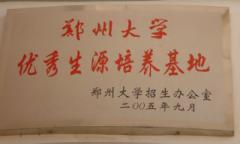 郑州大学
优秀生源培养基地
郑州大学招生办公室
二00五年九月